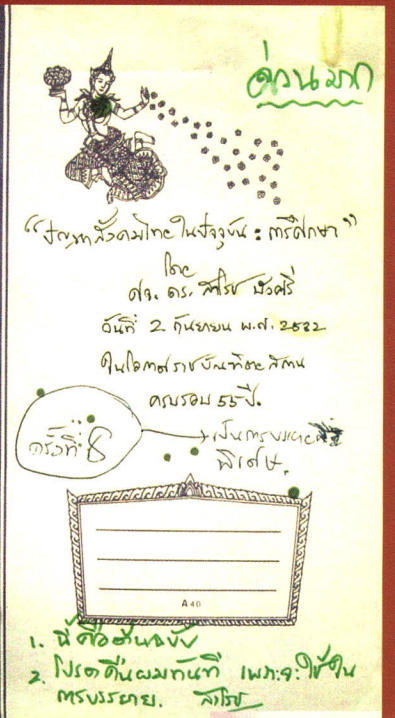 ด่วนมาก
“ปัญหาสังคมไทยในปัจจุบัน : การศึกษา”
โดย
ศจ. ดร. สาโรช บัวศรี
วันที่ 2 กันยายน พ.ศ. 2532
ในโอกาสราชบัณฑิตยสถาน
ครบรอบ 55 ปี.
ครั้งที่ 8
เป็นการบรรยาย
พิเศษ.
A 40
1. นี้คือต้นฉบับ
2. โปรดคืนผมทันที เพราะจะใช้ใน
การบรรยาย. สาโรช